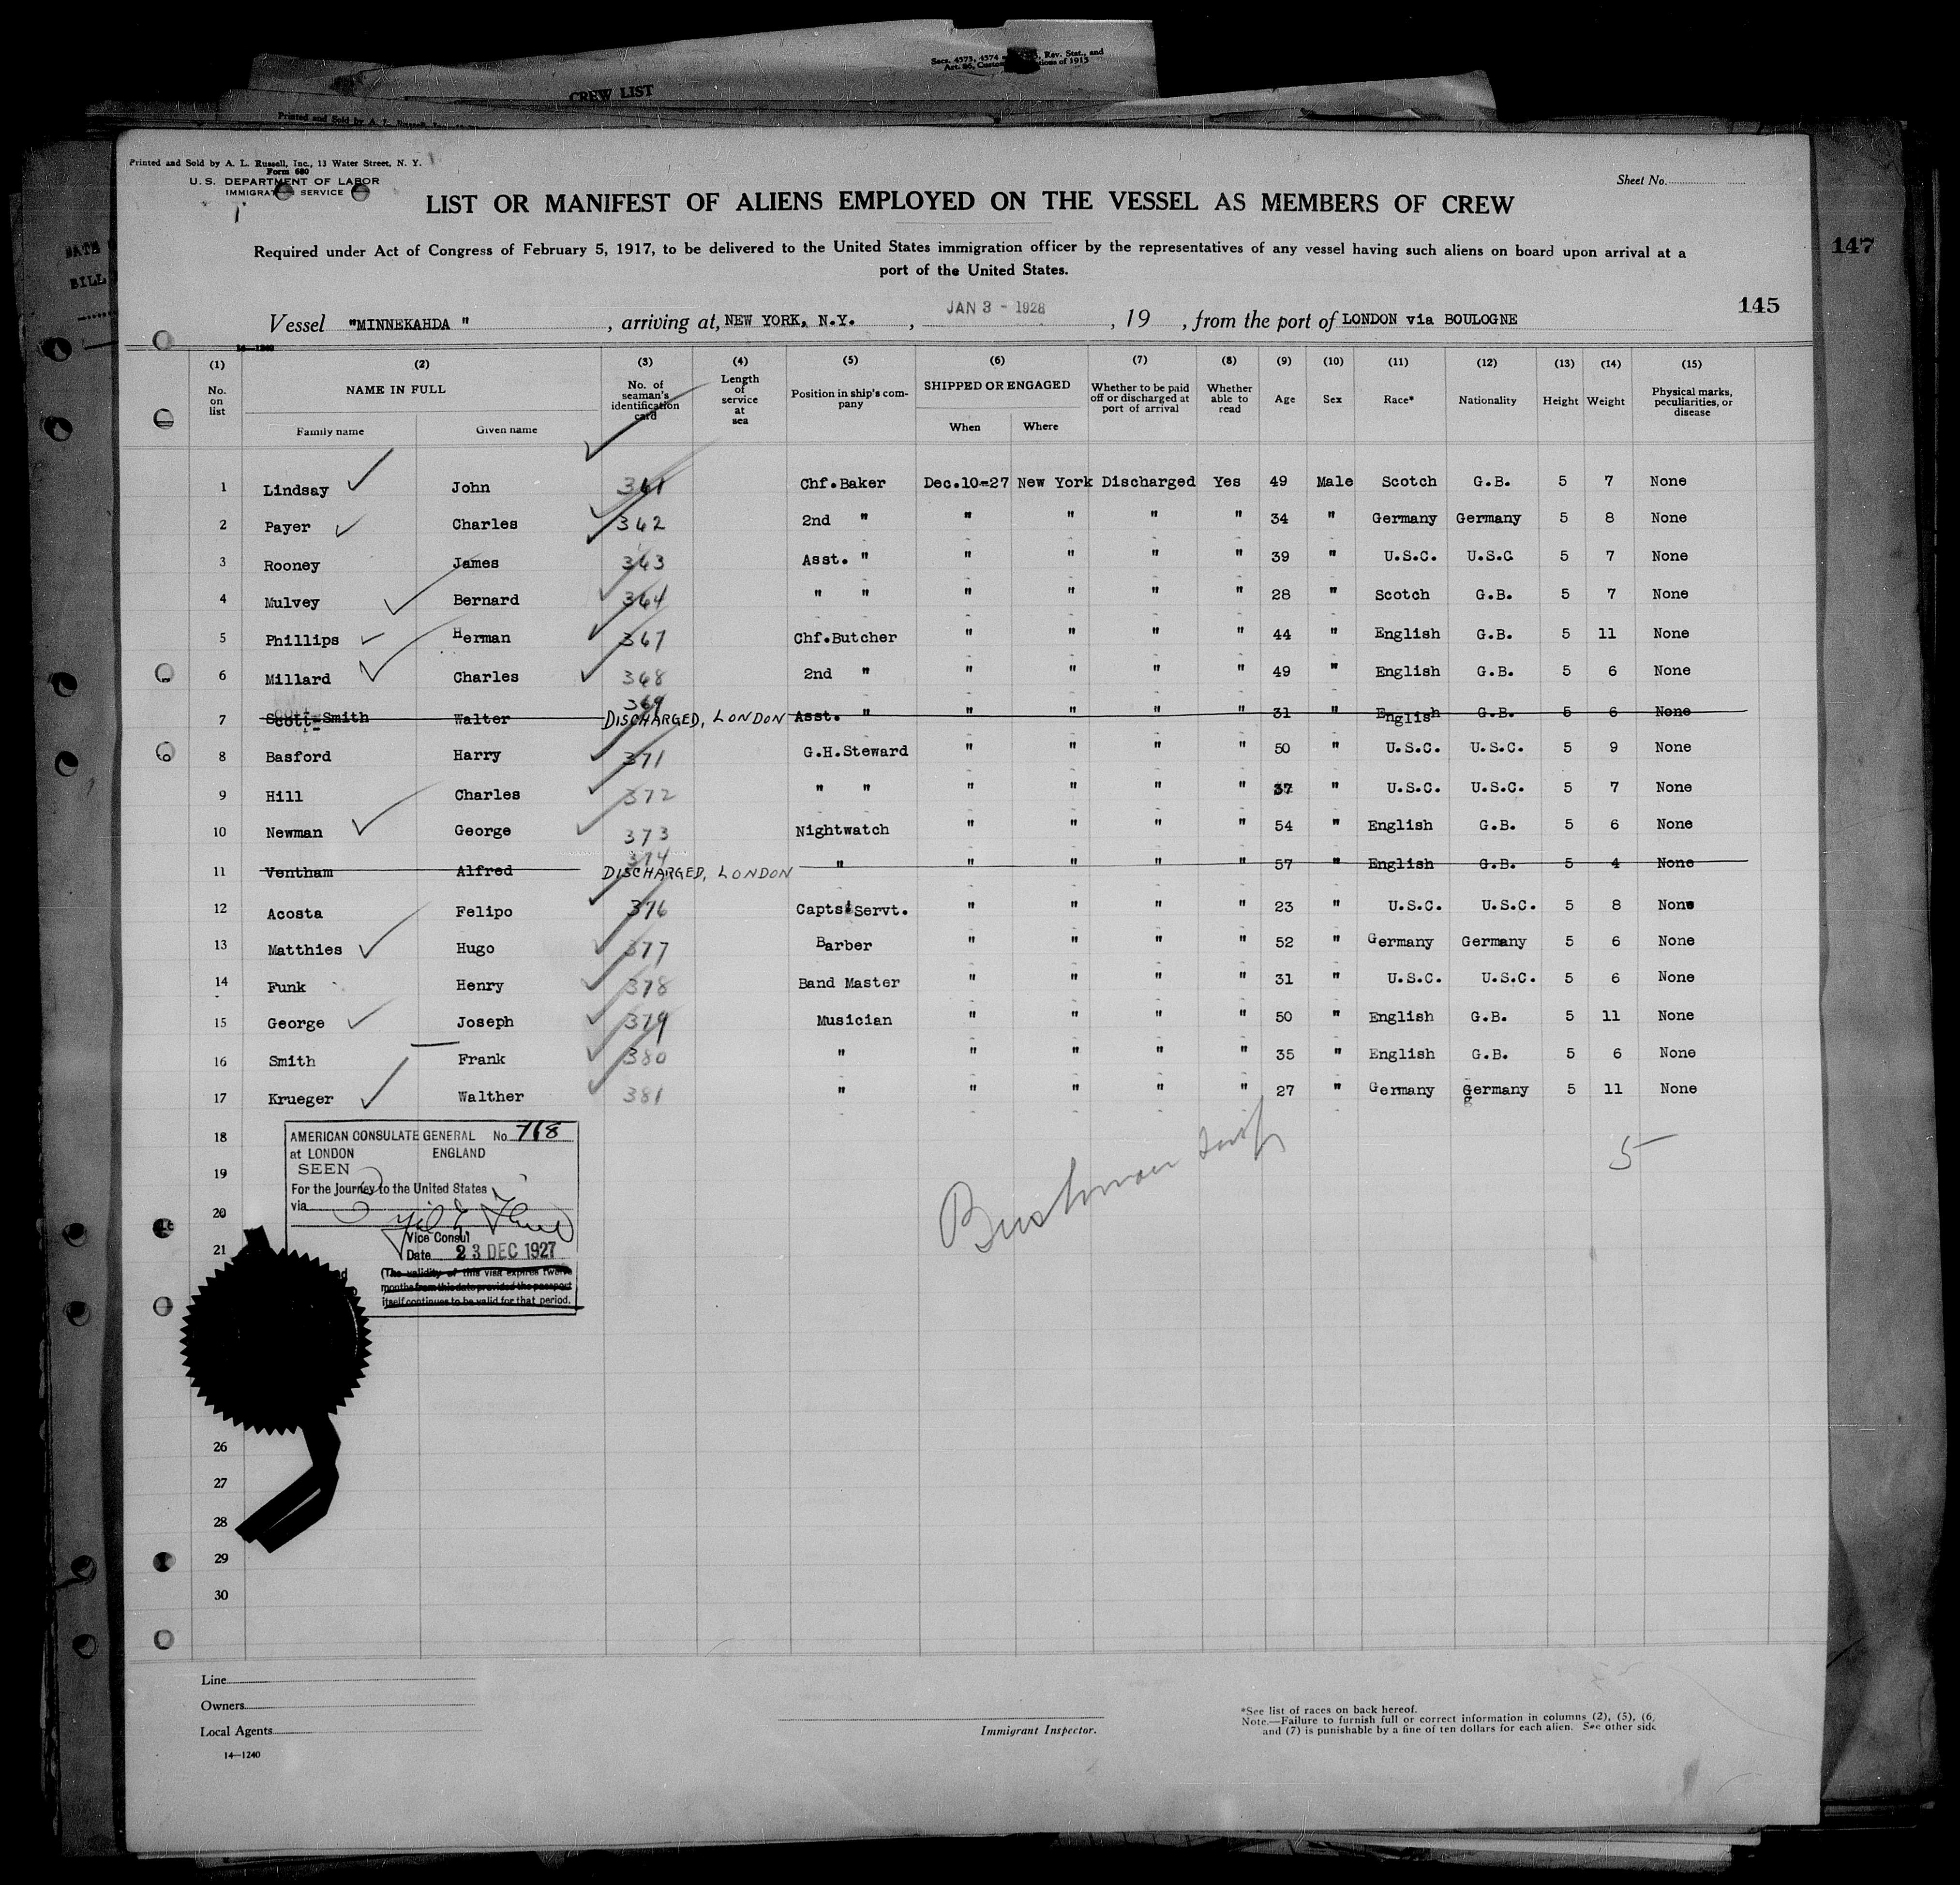 Secs. 4573, 4574 Rev. Stat., and
Art. 86, Custo tions of 1915
CREW LIST
Printed and Sold by A. L. Russell, Inc.
Printed and Sold by A. L. Russell, Inc., 13 Water Street, N. Y.
Form 680
U. S. DEPARTMENT OF LABOR
IMMIGRAT SERVICE
Sheet No.
LIST OR MANIFEST OF ALIENS EMPLOYED ON THE VESSEL AS MEMBERS OF CREW
Required under Act of Congress of February 5, 1917, to be delivered to the United States immigration officer by the representatives of any vessel having such aliens on board upon arrival at a
port of the United States.
147
145
Vessel "MINNEKAHDA", arriving at, NEW YORK, N.Y., JAN 3 - 1928, 19 , from the port of LONDON via BOULOGNE
14-1240
(1) (2) (3) (4) (5) (6) (7) (8) (9) (10) (11) (12) (13) (14) (15)
No. on list NAME IN FULL Family name Given name No. of seaman's identification card Length of service at sea Position in ship's company SHIPPED OR ENGAGED When Where Whether to be paid off or discharged at port of arrival Whether able to read Age Sex Race* Nationality Height Weight Physical marks, peculiarities, or disease
1 Lindsay John 341 Chf.Baker Dec.10-27 New York Discharged Yes 49 Male Scotch G.B. 5 7 None
2 Payer Charles 342 2nd " " " " " 34 " Germany Germany 5 8 None
3 Rooney James 343 Asst. " " " " " 39 " U.S.C. U.S.C 5 7 None
4 Mulvey Bernard 344 " " " " " " 28 " Scotch G.B. 5 7 None
5 Phillips Herman 347 Chf.Butcher " " " " 44 " English G.B. 5 11 None
6 Millard Charles 348 2nd " " " " " 49 " English G.B. 5 6 None
7 Scott-Smith Walter 369 DISCHARGED, LONDON Asst. " " " " " 31 " English G.B. 5 6 None
8 Basford Harry 371 G.H.Steward " " " " 50 " U.S.C. U.S.C. 5 9 None
9 Hill Charles 372 " " " " " " 37 " U.S.C. U.S.C. 5 7 None
10 Newman George 373 Nightwatch " " " " 54 " English G.B. 5 6 None
11 Ventham Alfred 374 DISCHARGED, LONDON " " " " " 57 " English G.B. 5 4 None
12 Acosta Felipo 376 Capts' Servt. " " " " 23 " U.S.C. U.S.C. 5 8 None
13 Matthies Hugo 377 Barber " " " " 52 " Germany Germany 5 6 None
14 Funk Henry 378 Band Master " " " " 31 " U.S.C. U.S.C. 5 6 None
15 George Joseph 379 Musician " " " " 50 " English G.B. 5 11 None
16 Smith Frank 380 " " " " " 35 " English G.B. 5 6 None
17 Krueger Walther 381 " " " " " 27 " Germany Germany 5 11 None
18
19
20
21
26
27
28
29
30
AMERICAN CONSULATE GENERAL No. 768
at LONDON ENGLAND
SEEN
For the Journey to the United States
via
Vice Consul
Date 23 DEC 1927
(The validity of this visa expires twelve
months from this date provided the passport
itself continues to be valid for that period.
5
Line
Owners
Local Agents
14-1240
Immigrant Inspector.
*See list of races on back hereof.
Note.—Failure to furnish full or correct information in columns (2), (5), (6
and (7) is punishable by a fine of ten dollars for each alien. See other side